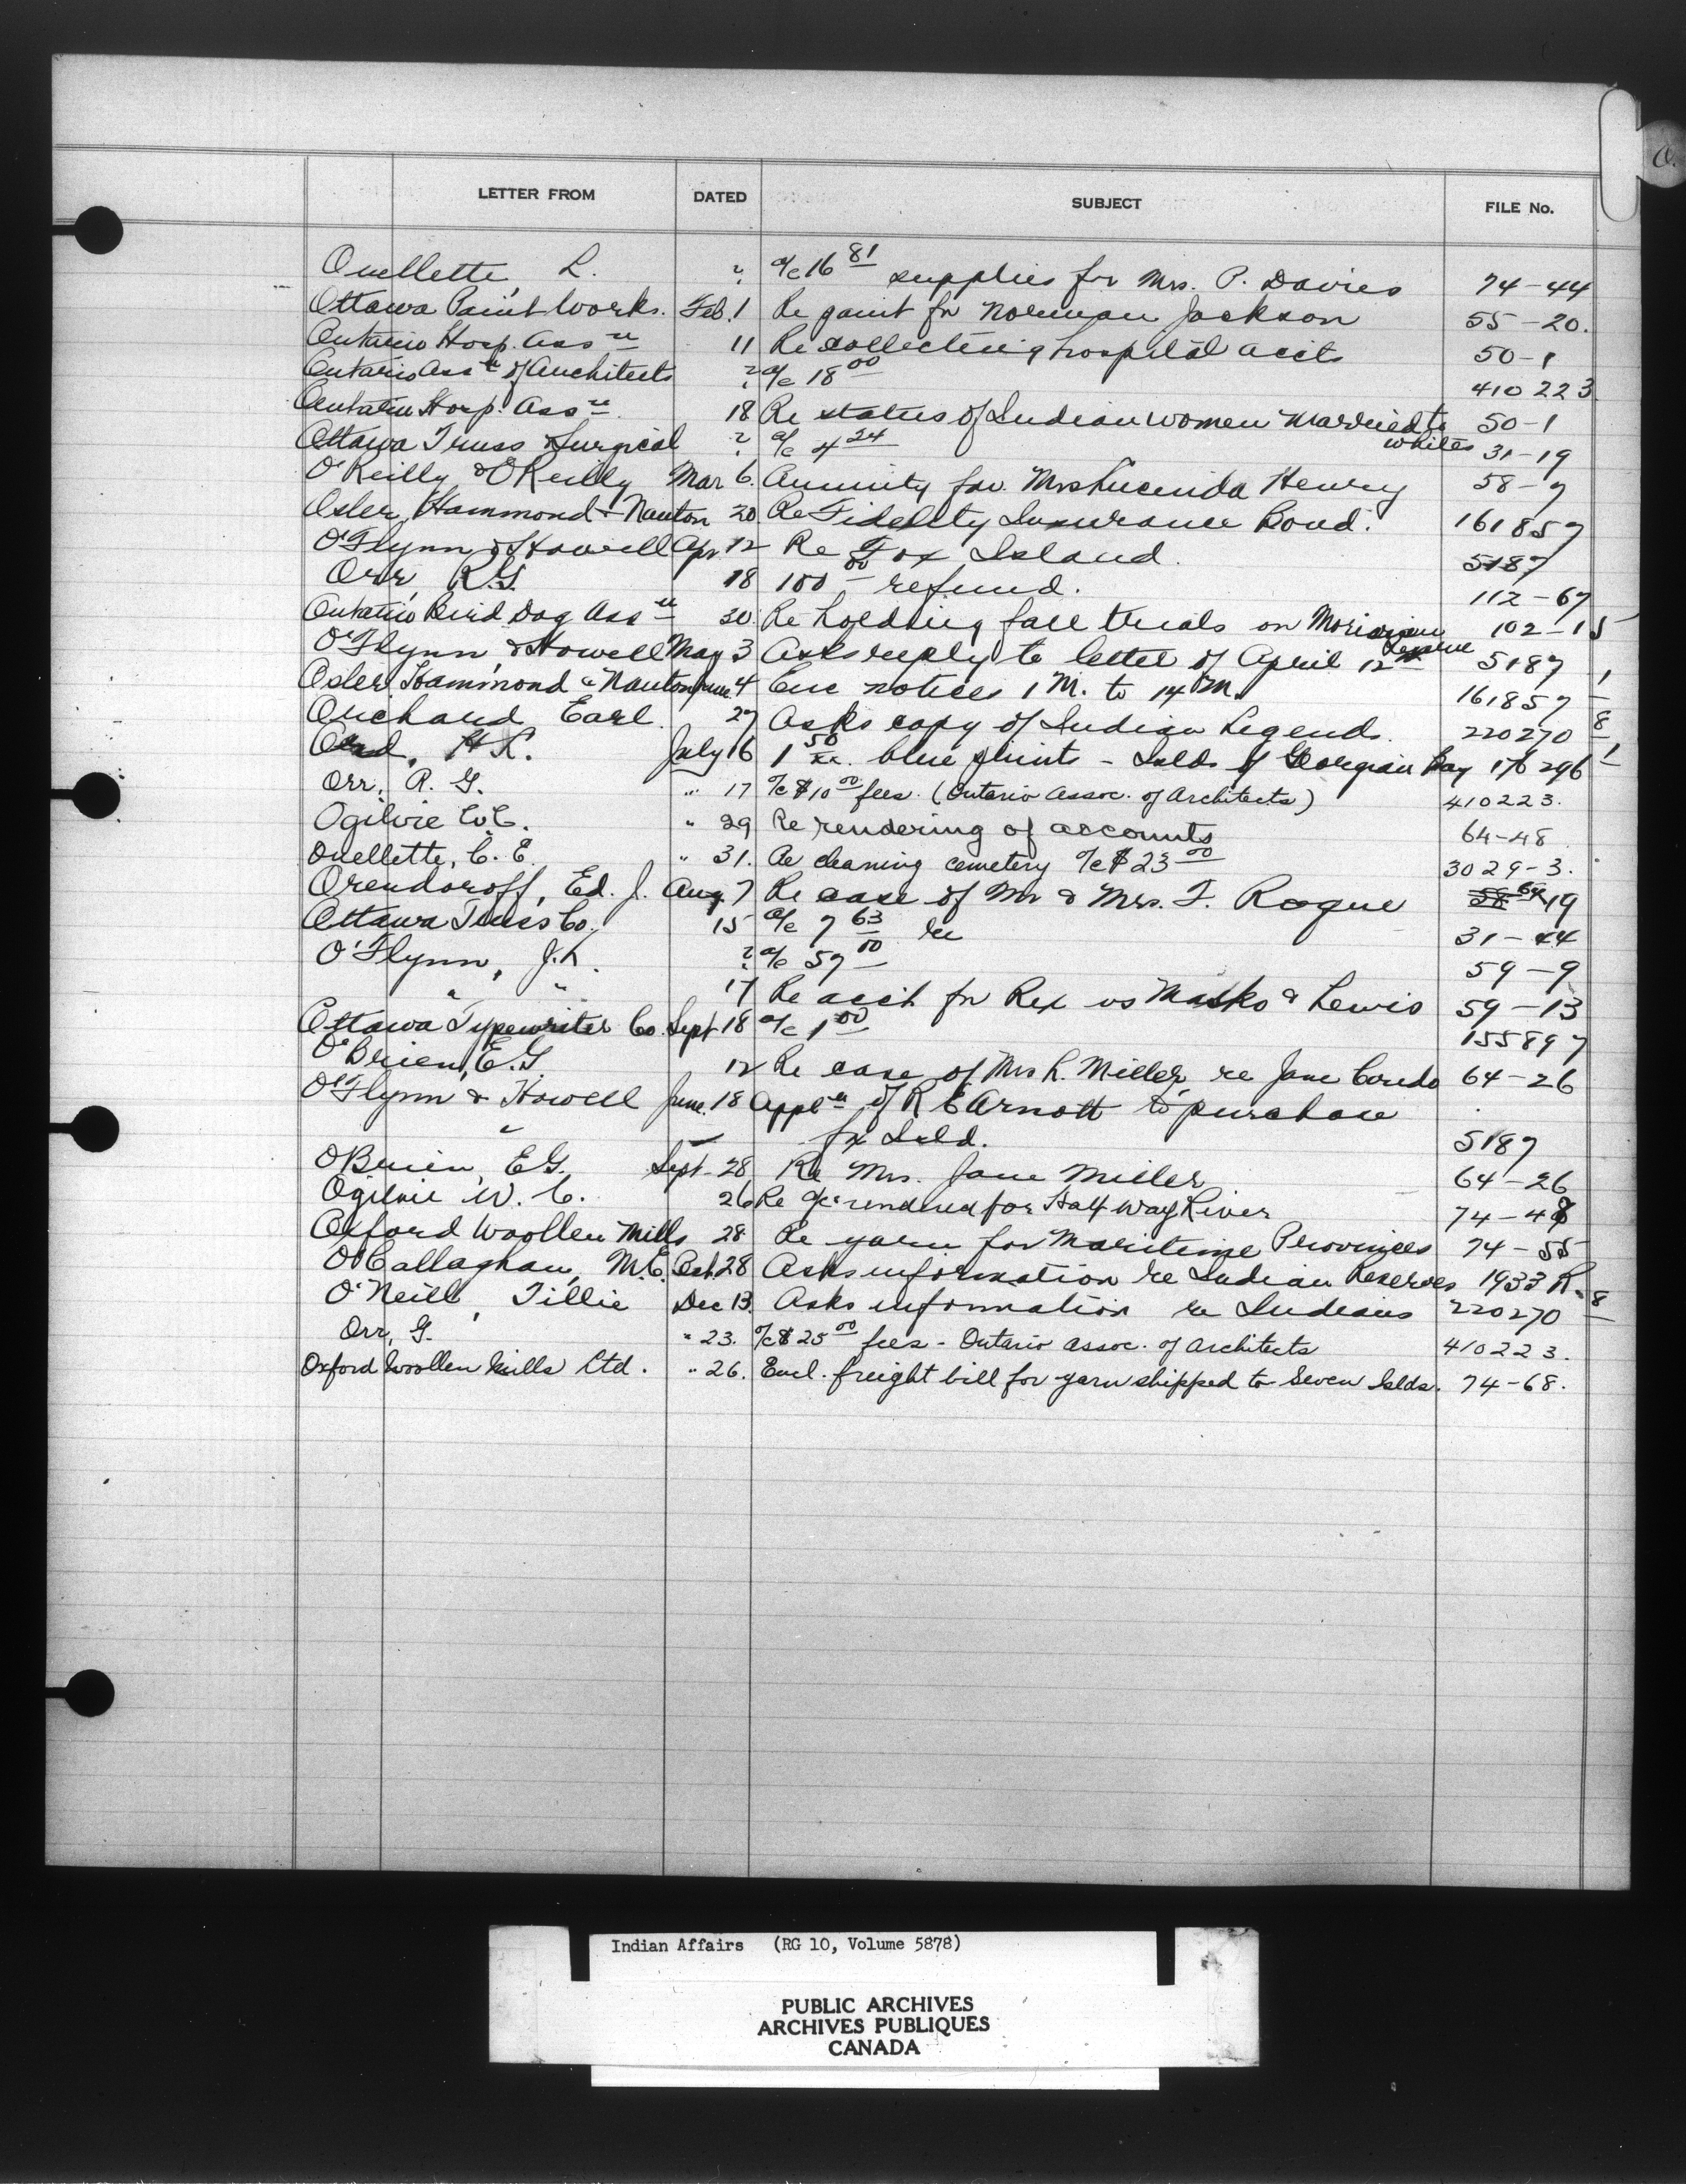 O.
LETTER FROM DATED SUBJECT FILE No.
Ouellette, L. ? a/c 16 81 supplies for Mrs. P. Davies 74-44
Ottawa Paint Works. Feb. 1 Re paint for Norman Jackson 55-20.
Ontario Hosp. Assn 11 Re collecting hospital accts 50-1
Ontario Assn of Architects ? a/c 18 00 410223
Ontario Hosp. Assn 18 Re status of Indian women married to whites 50-1
Ottawa Truss Surgical ? a/c 4 24 31-19
O'Reilly & O'Reilly Mar 6. Annuity for Mrs Lucinda Henry 58-7
Osler, Hammond & Nanton 20. Re Fidelity Insurance Bond. 161857
O'Flynn & Howell Apr 12 Re Fox Island. 5187
Orr, R.G. 18 100 00 refund. 112-67
Ontario Bird Dog Assn 30. Re holding fall trials on Moravian Reserve 102-15
O'Flynn & Howell May 3 Asks reply to letter of April 12th 5187 1
Osler Hammond & Nanton June 4 Enc notices 1 M. to 14 M. 161857
Orchard, Earl. 27 Asks copy of Indian Legends. 220270 8
Ord, H L. July 16 1 50 blue prints - Islds of Georgian Bay 176296 1
Orr, R. G. " 17 a/c $10 00 fees. (Ontario Assoc. of Architects) 410223.
Ogilvie W.C. " 29 Re rendering of accounts 64-48
Ouellette, C. E. " 31. Re cleaning cemetery a/c $23 00 3029-3.
Orendoroff, Ed. J. Aug. 7 Re case of Mr & Mrs. F. Rogue 64-19
Ottawa Truss Co. 15 a/c 7 63 re 31-44
O'Flynn, J.K. ? a/c 57 00 59-9
" " 17 Re acct for Rex vs Masko & Lewis 59-13
Ottawa Typewriter Co. Sept 18 a/c 1 00 155897
O'Brien, E.G. 12 Re case of Mrs R. Miller re Jane Condo 64-26
O'Flynn & Howell June. 18 Appln of R E Arnott to purchase
" fx Isld. 5187
O'Brien, E G. Sept 28 Re Mrs. Jane Miller 64-26
Ogilvie W. C. 26 Re a/c rendered for Half Way River 74-48
Oxford Woollen Mills 28 Re yarn for Maritime Provinces 74-55
O'Callaghan, M.C. Oct. 28 Asks information re Indian Reserves 1933 R.
O'Neill, Tillie Dec 13. Asks information re Indians 220270 8
Orr, G. " 23. a/c $25 00 fees - Ontario Assoc. of Architects 410223.
Oxford Woollen Mills Ltd. " 26. Encl. freight bill for yarn shipped to Seven Islds. 74-68.
Indian Affairs (RG 10, Volume 5878)
PUBLIC ARCHIVES
ARCHIVES PUBLIQUES
CANADA